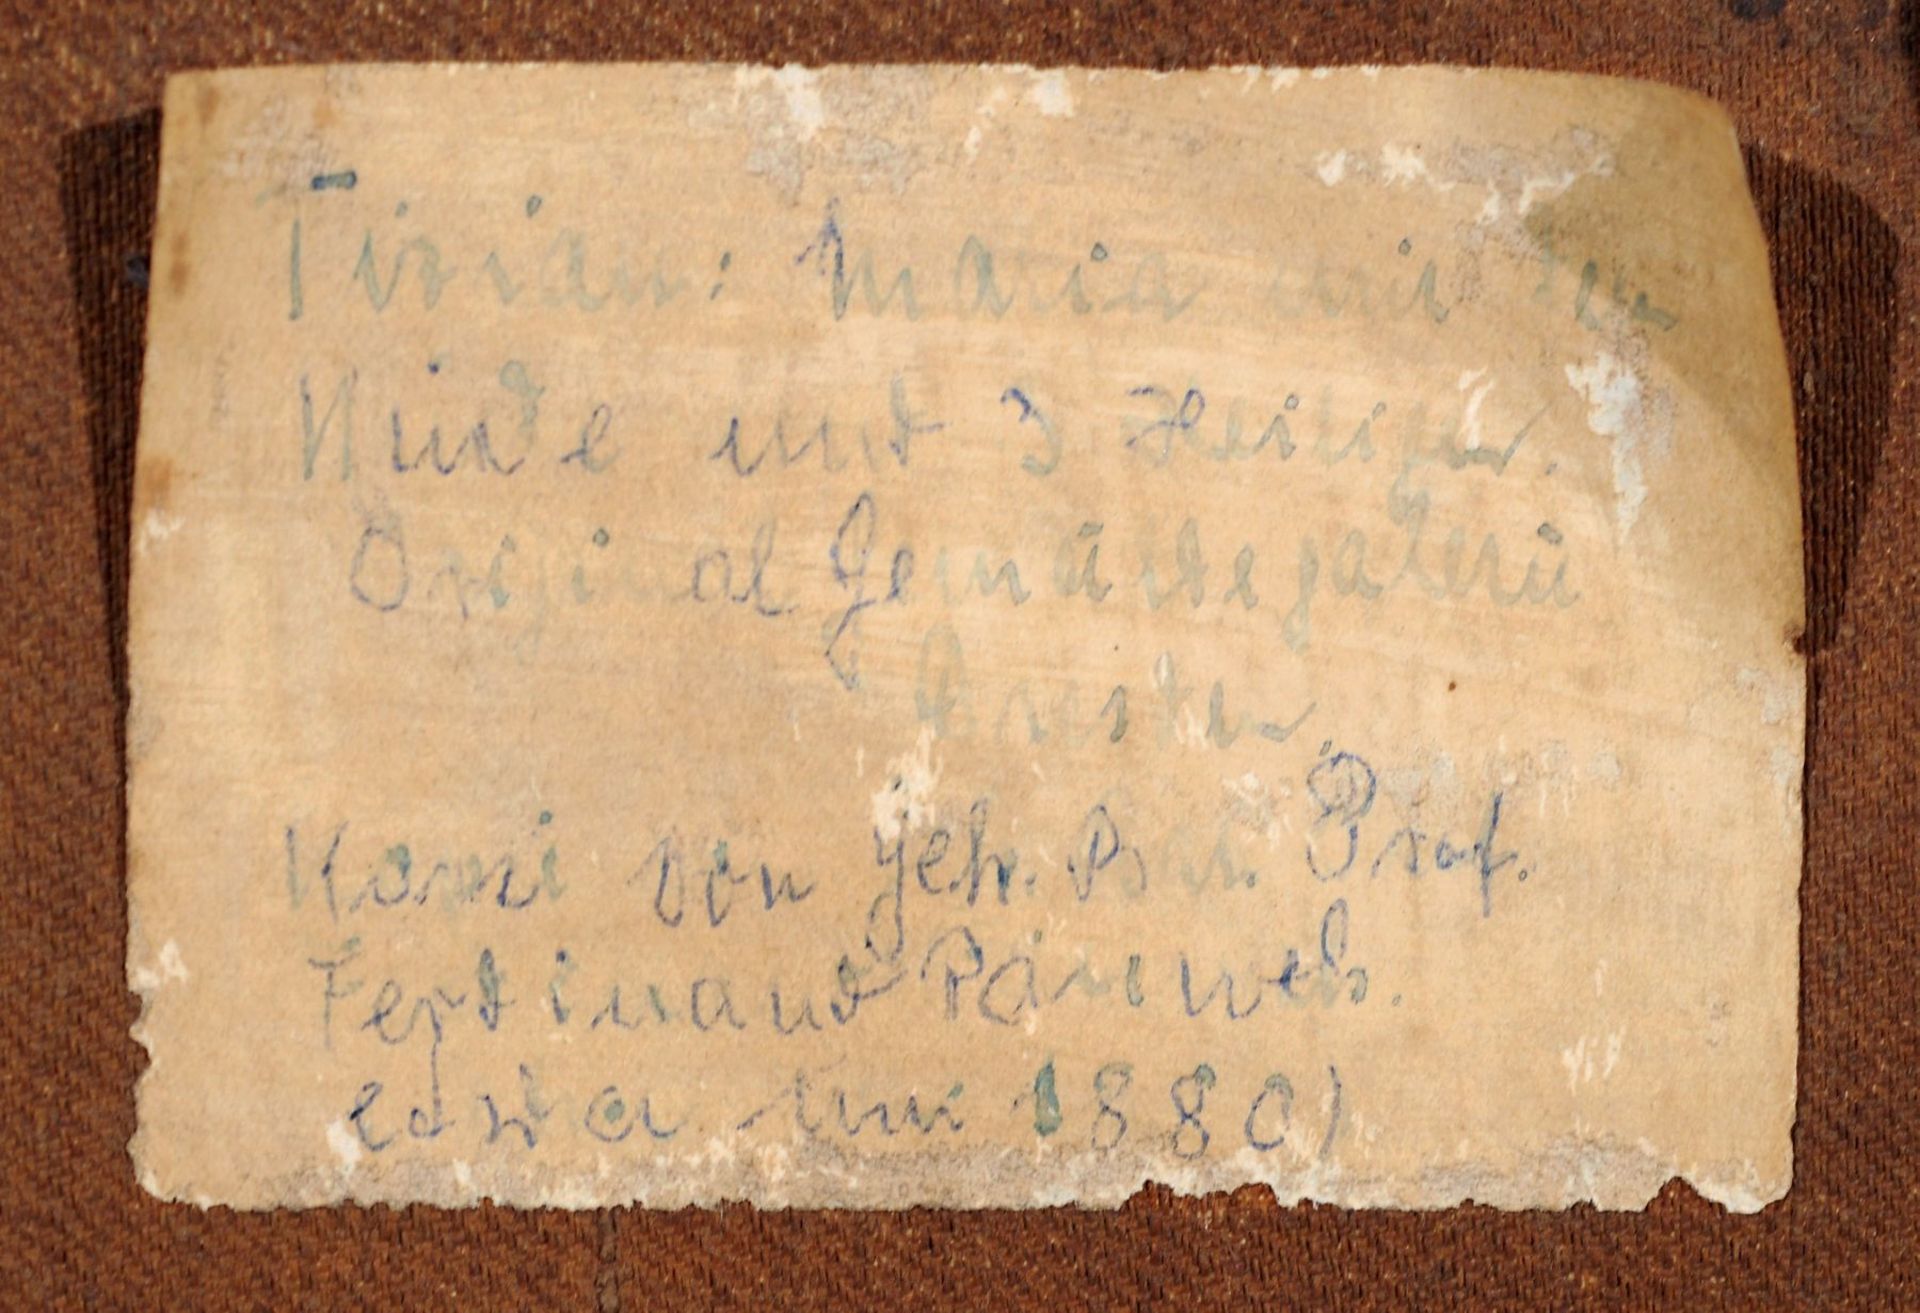 Tizian: Maria mit dem
Kinde und 3 Heiligen.
Original Gemäldegalerie
Dresden
Kopie von Geh. Rat. Prof.
Ferdinand Pauwels.
etwa um 1880)